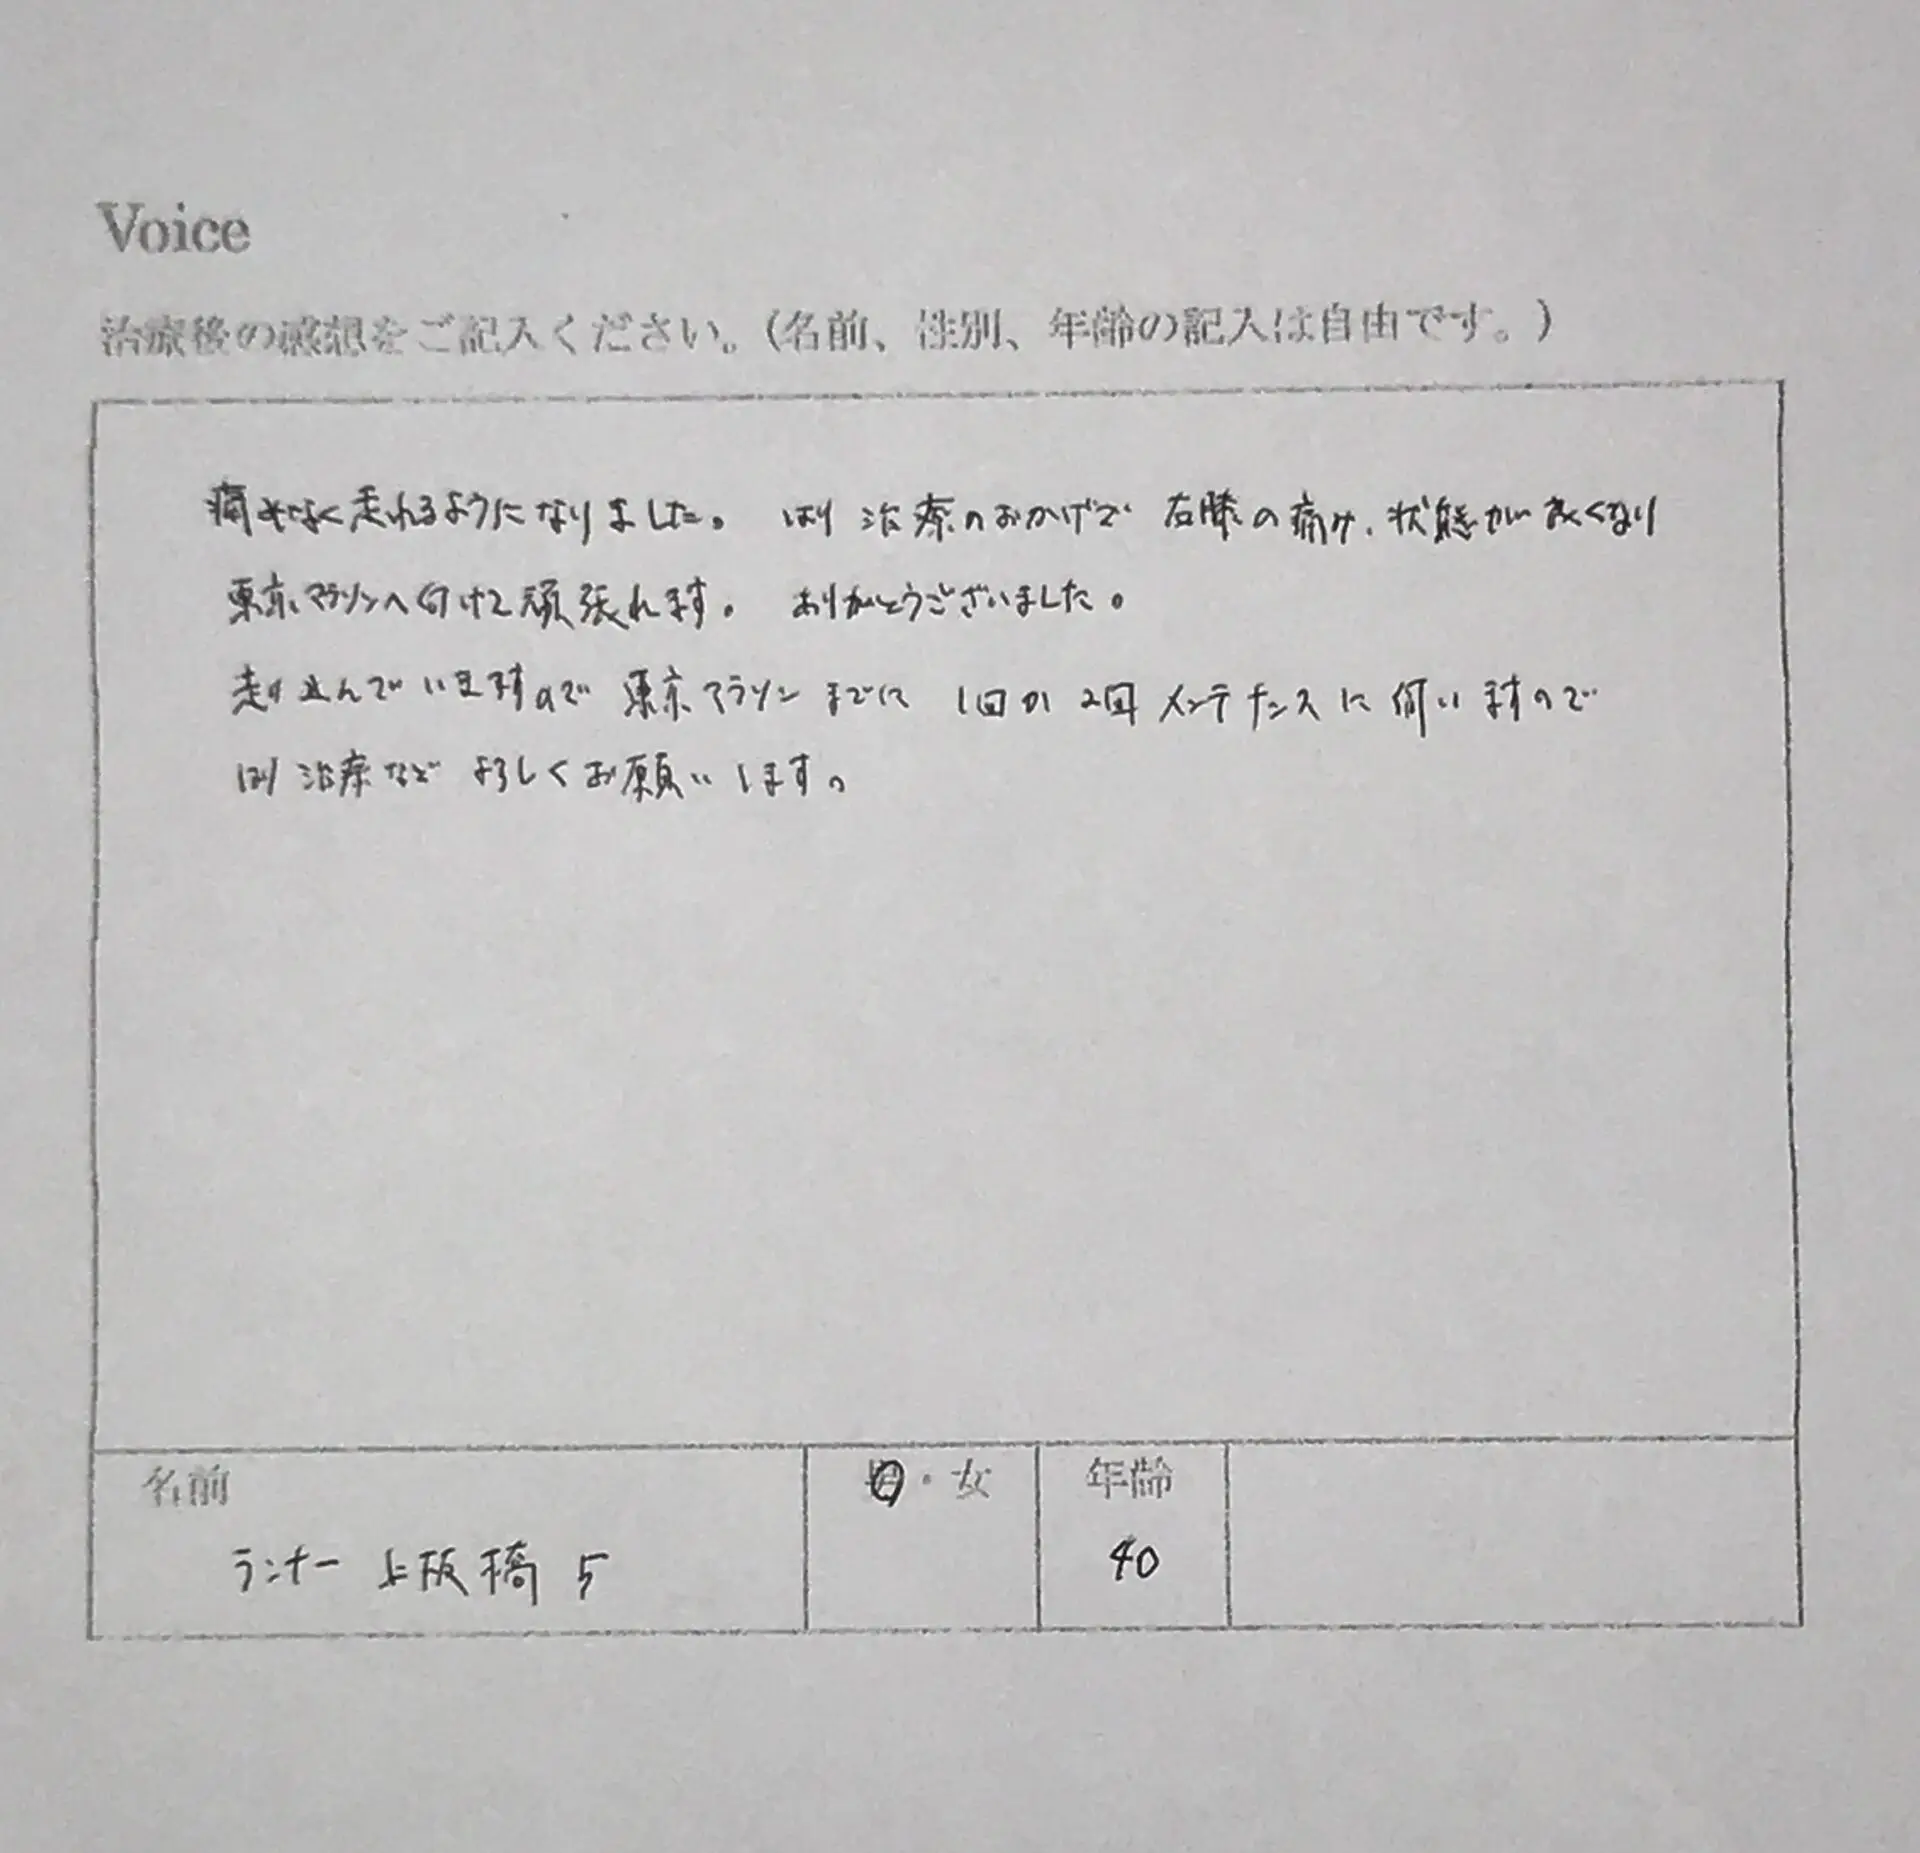 Voice
治療後の感想をご記入ください。(名前、性別、年齢の記入は自由です。)
痛みなく走れるようになりました。 はり治療のおかげで 右膝の痛み、状態が良くなり
東京マラソンへ向けて頑張れます。 ありがとうございました。
走り込んでいますので 東京マラソンまでに 1回か2回 メンテナンスに伺いますので
はり治療など よろしくお願いします。
名前 男・女 年齢
ランナー 上板橋 5 40